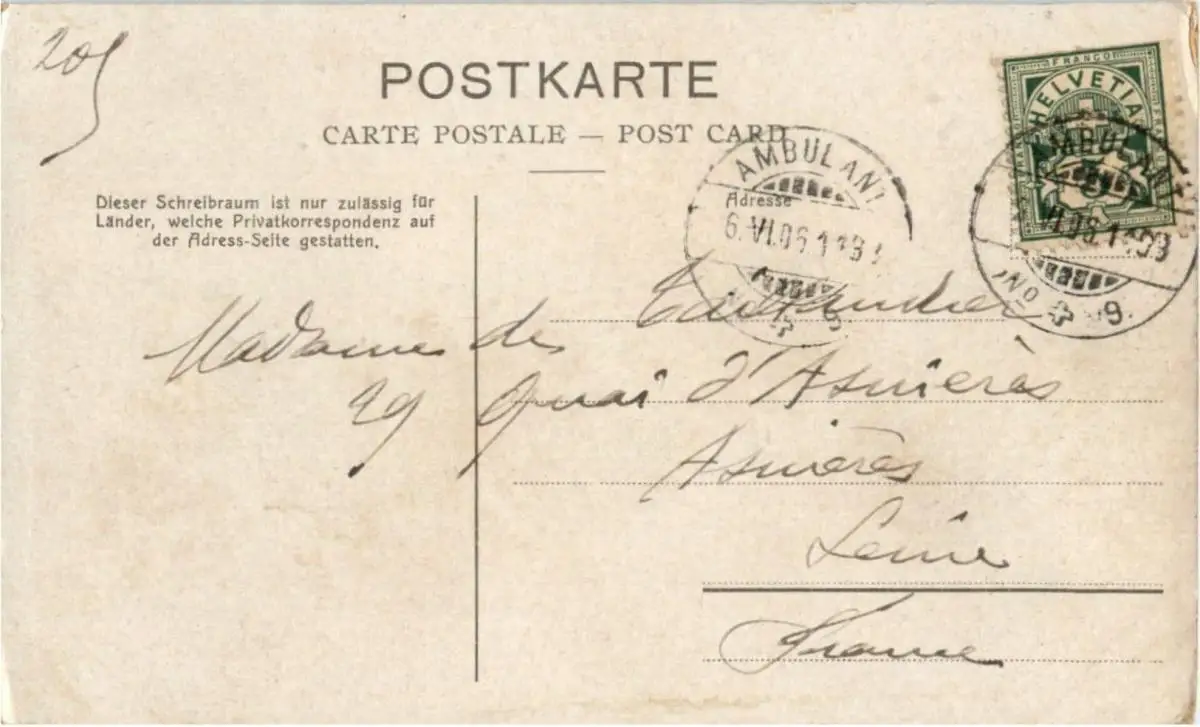 205
POSTKARTE
CARTE POSTALE — POST CARD
FRANCO
HELVETIA
Dieser Schreibraum ist nur zulässig für
Länder, welche Privatkorrespondenz auf
der Adress-Seite gestatten.
Adresse
AMBULANT
6.VI.06.
No 9
AMBULANT
VI.06.
No 9.
Madame de
29 Quai d'Asnières
Asnières
Seine
France